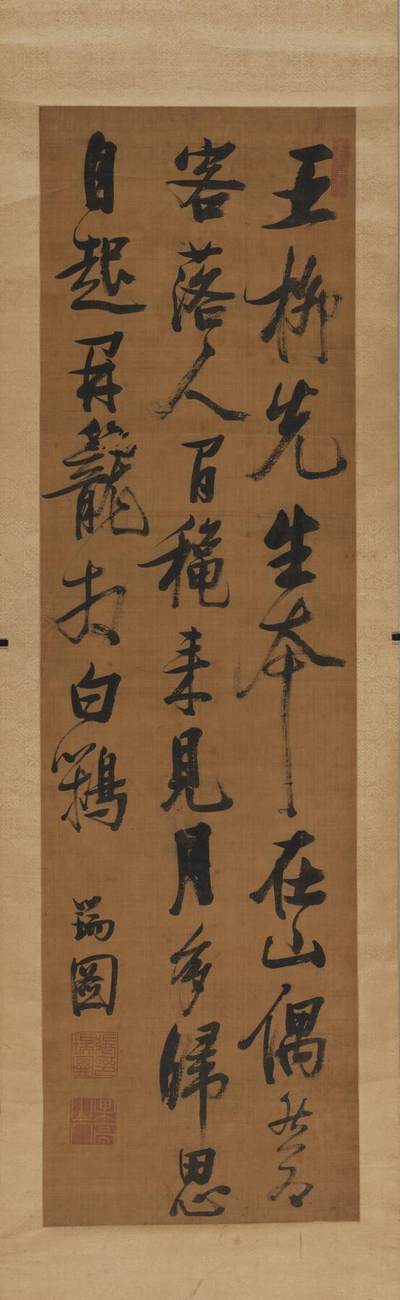 五柳先生本在山偶然為
客落人間穐来見月多歸思
自起開籠放白鷴
瑞圖